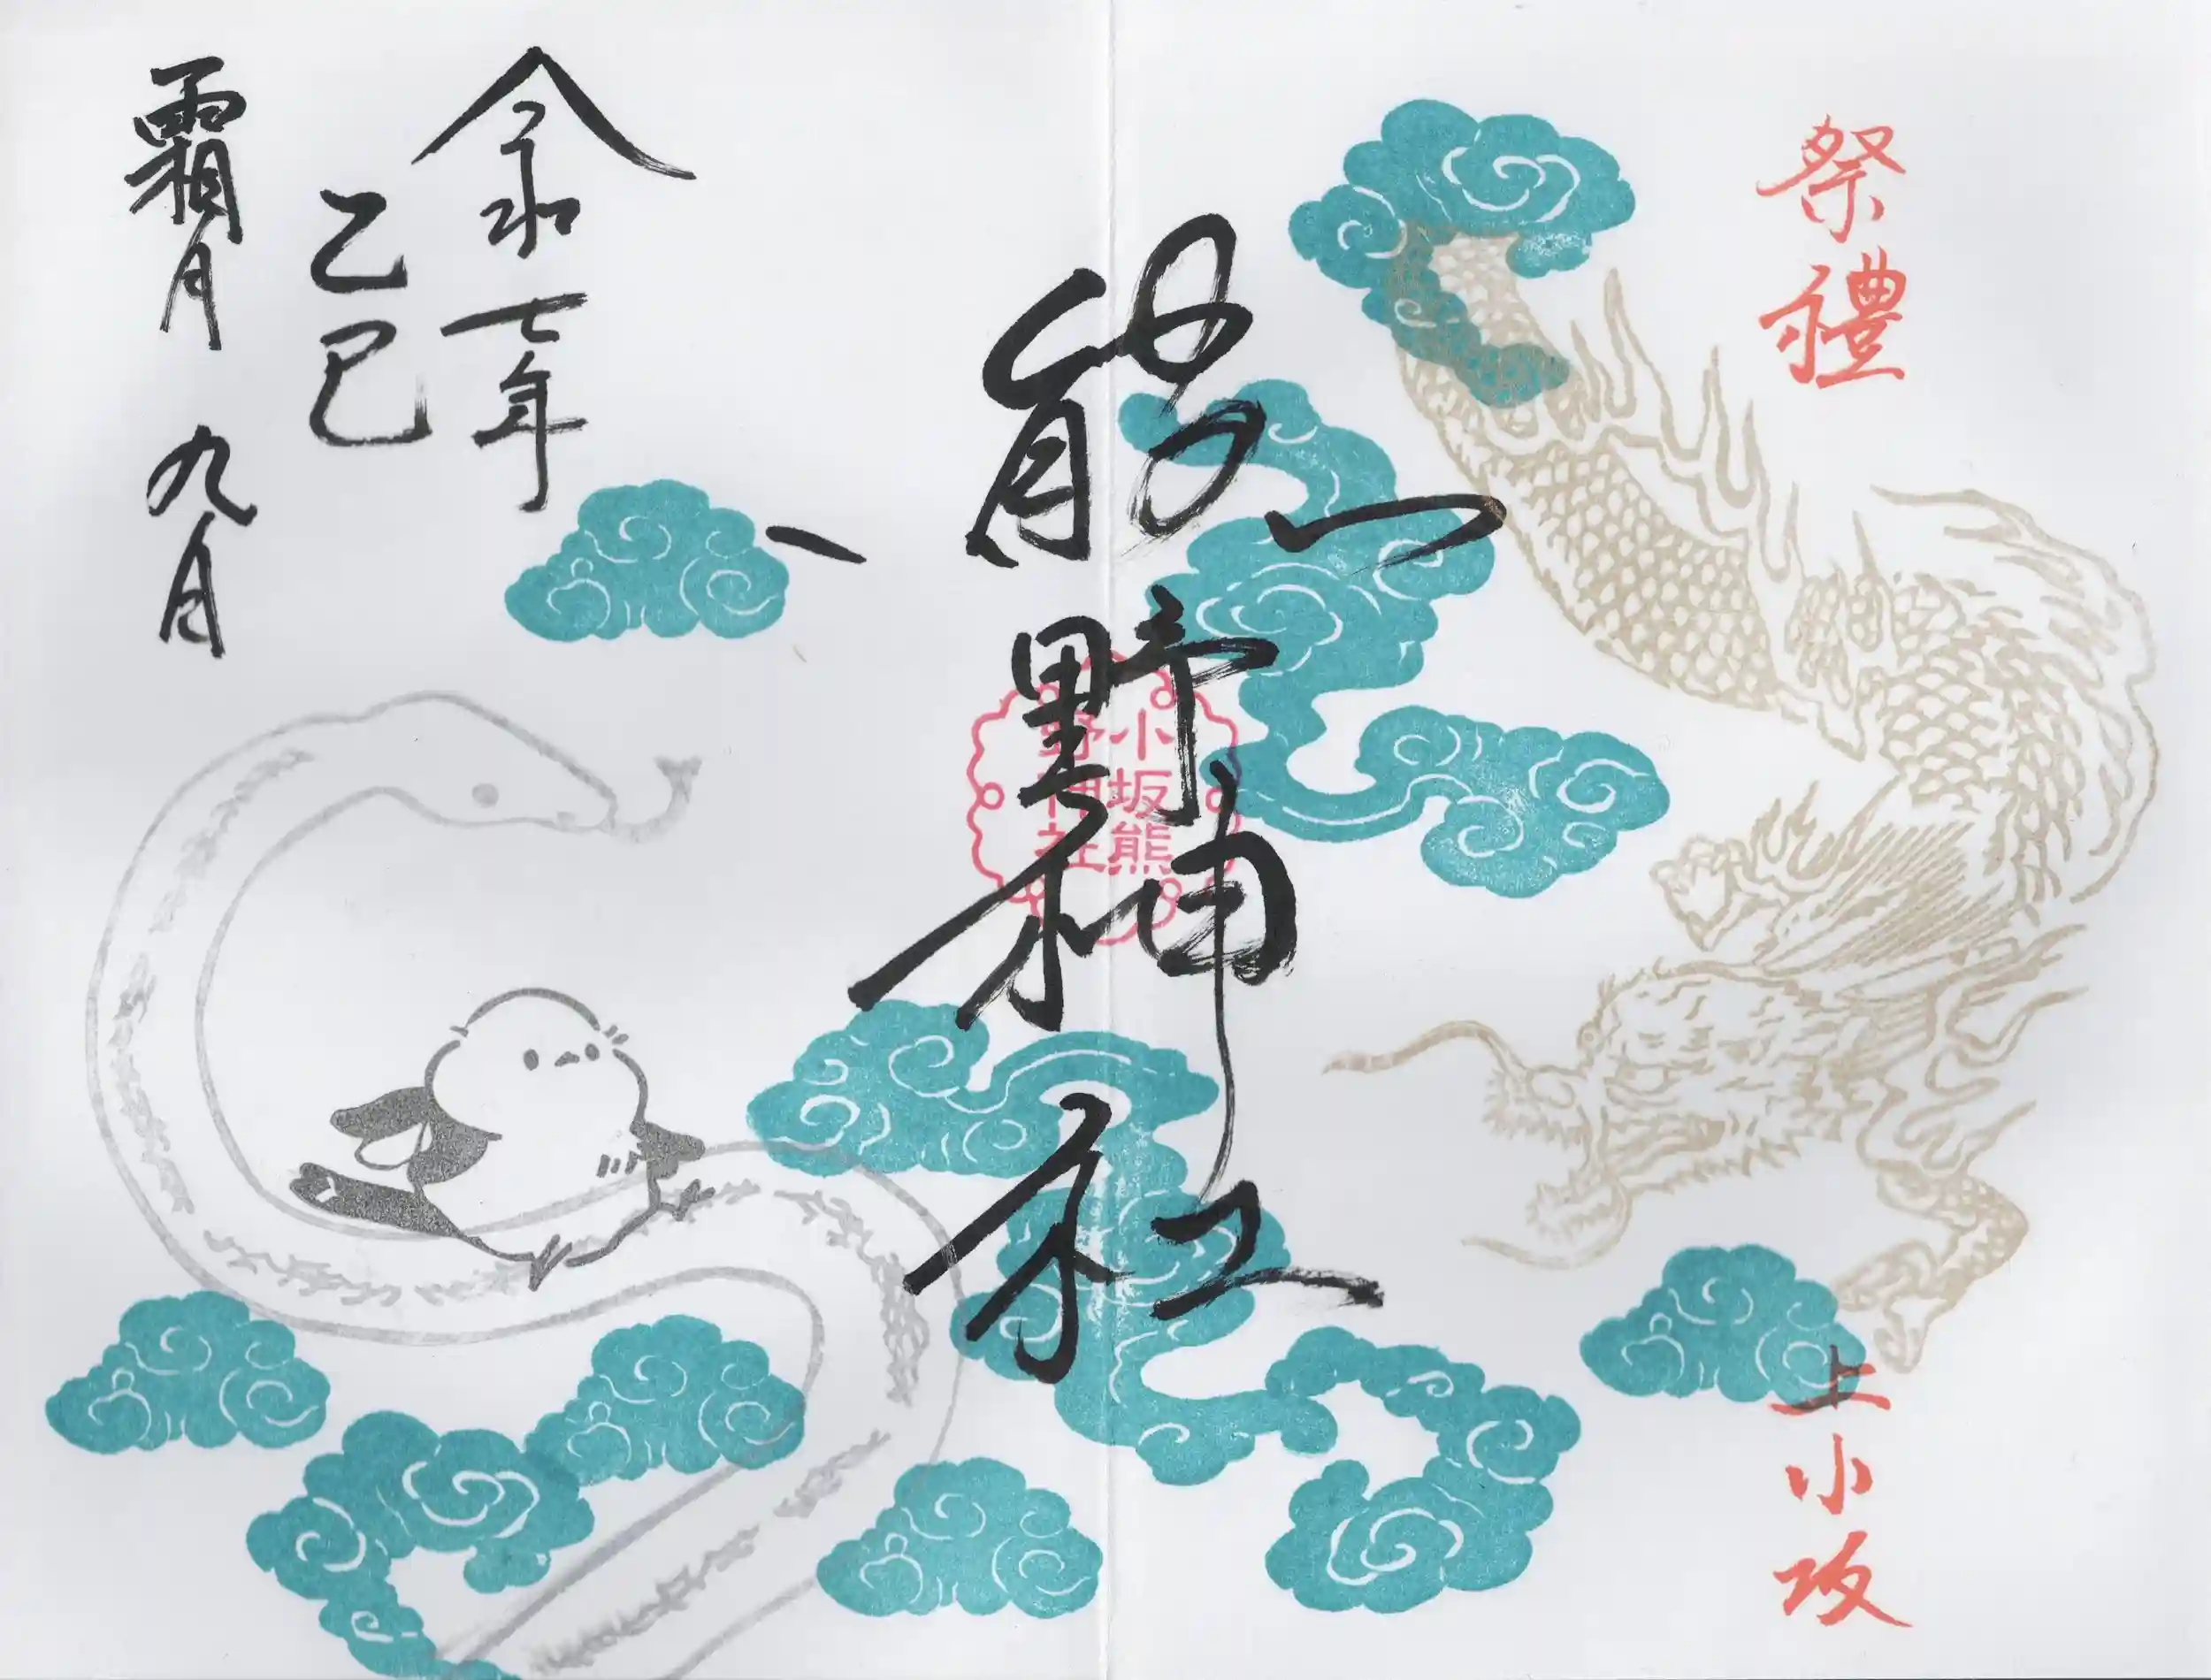 祭禮
上小坂
熊野神社
小坂熊
野神社
令和七年
乙巳
霜月 九日